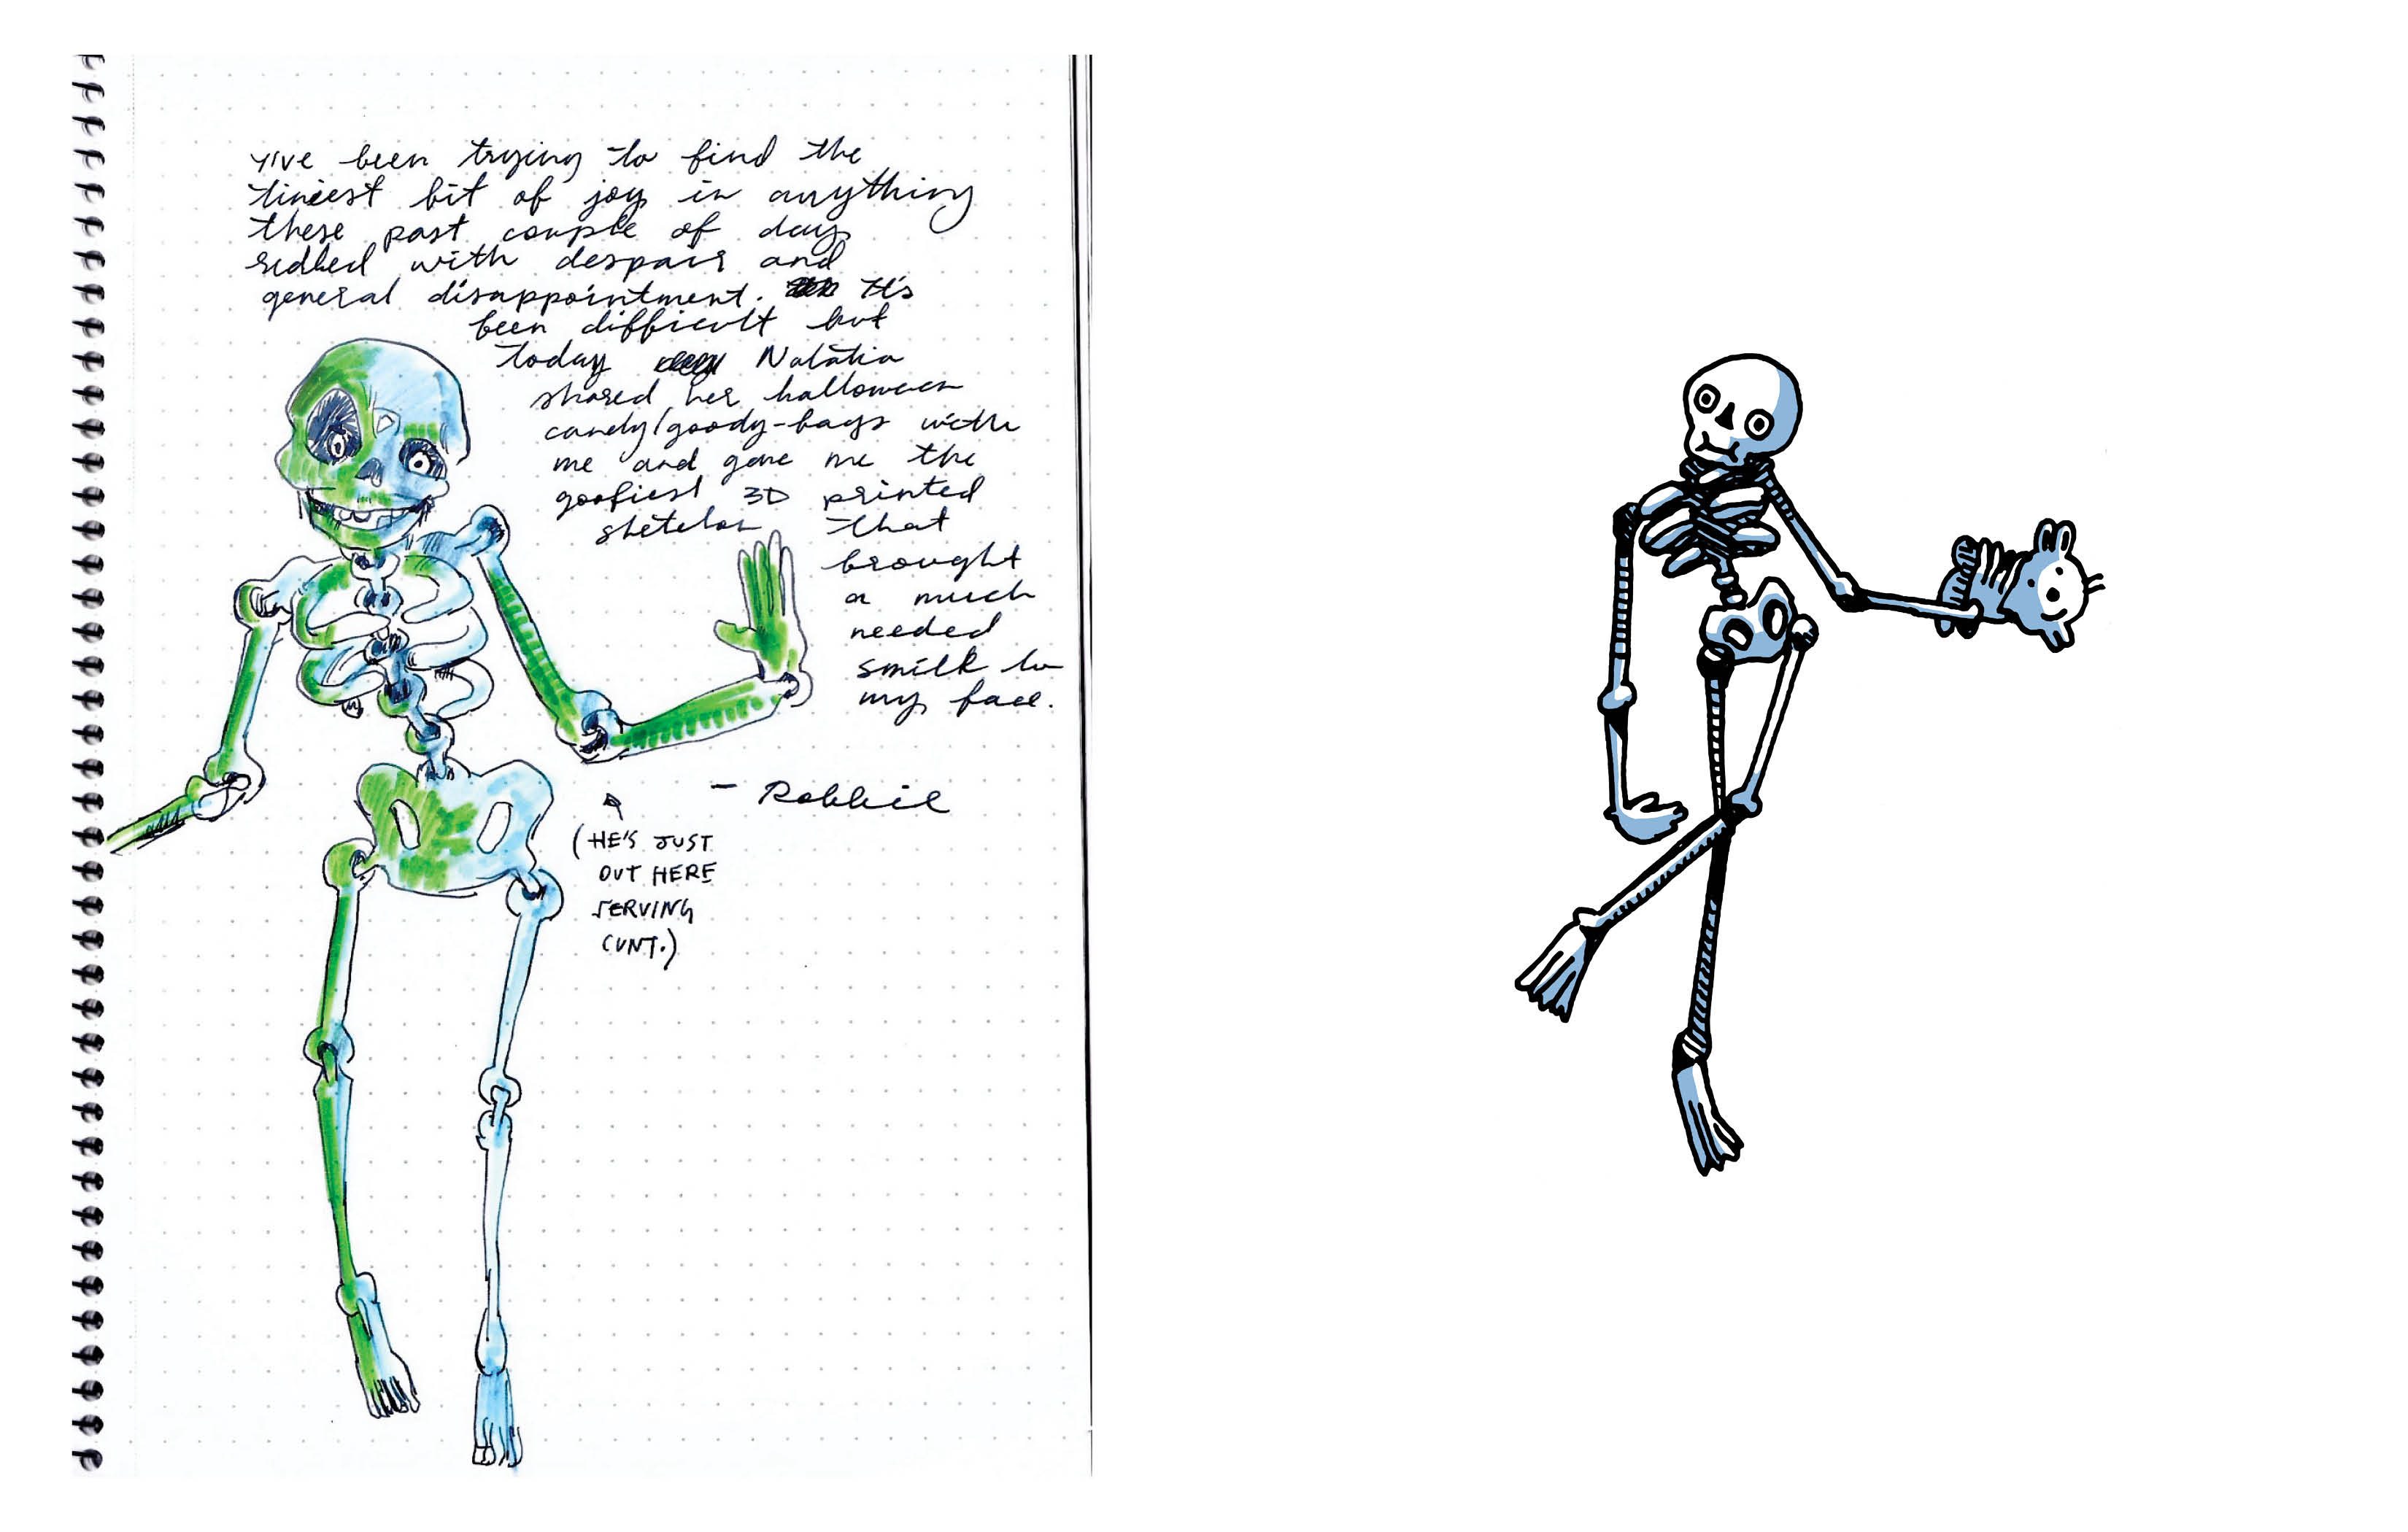 I've been trying to find the
tiniest bit of joy in anything
these past couple of days
riddled with despair and
general disappointment. It's
been difficult but
today Natalia
shared her halloween
candy/goody-bags with
me and gave me the
goofiest 3D printed
skeleton that
brought
a much
needed
smile to
my face.
- Robbie
(HE'S JUST
OUT HERE
SERVING
CUNT.)